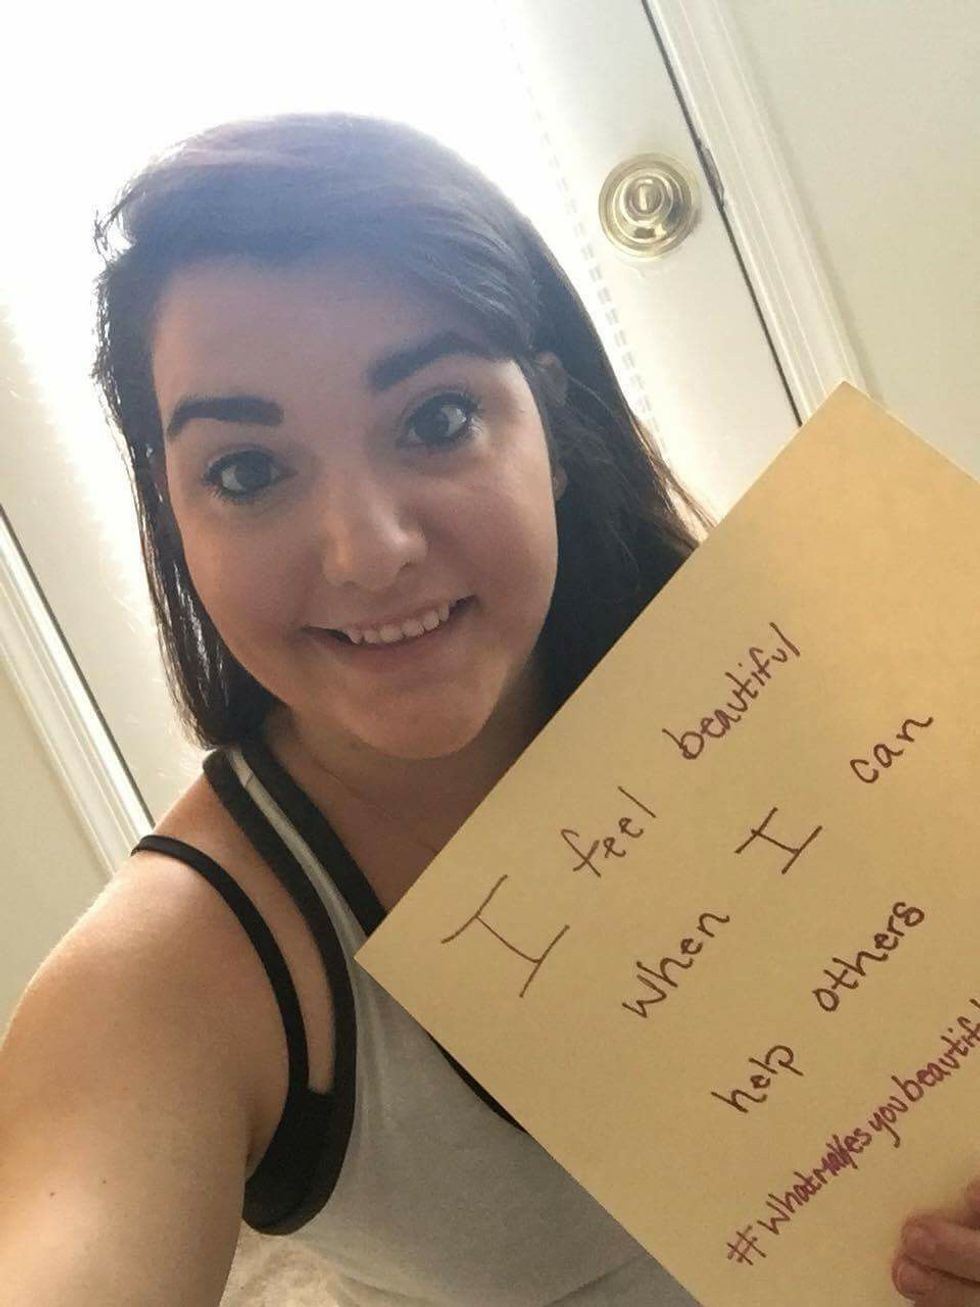 I feel beautiful
when I can
help others
#whatmakesyoubeautiful